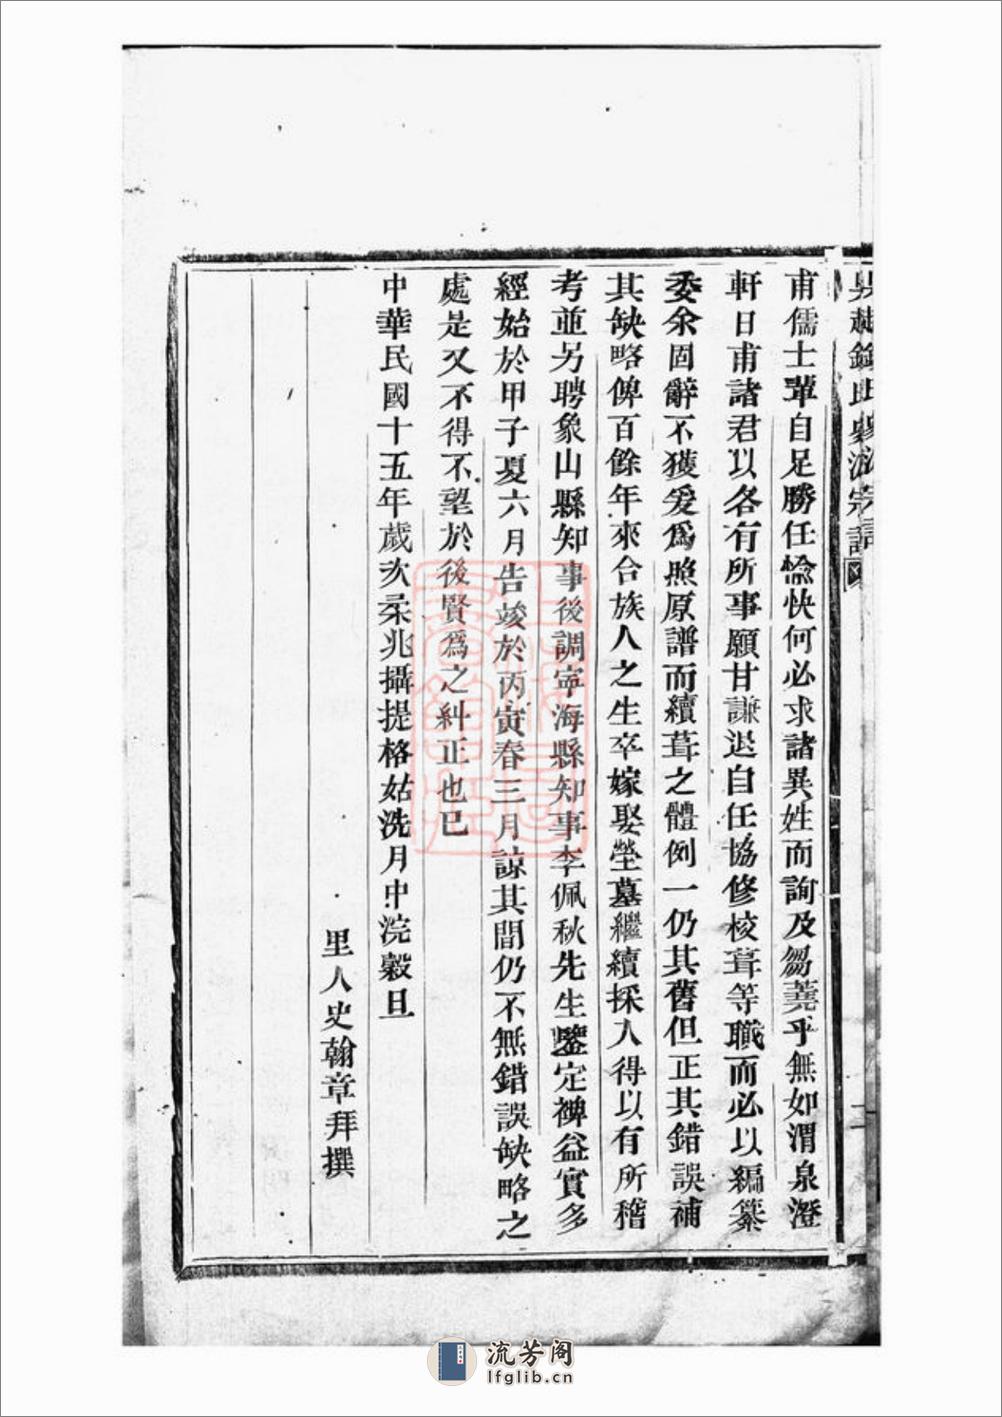 甫儒士輩自足勝任愉快何必求諸異姓而詢及芻蕘乎無如渭泉澄
軒日甫諸君以各有所事願甘謙退自任協修校葺等職而必以編纂
委余固辭不獲爰爲照原譜而續葺之體例一仍其舊但正其錯誤補
其缺略俾百餘年來合族人之生卒嫁娶塋墓繼續採入得以有所稽
考並另聘象山縣知事後調寧海縣知事李佩秋先生鑒定裨益實多
經始於甲子夏六月告竣於丙寅春三月諒其間仍不無錯誤缺略之
處是又不得不望於後賢爲之糾正也已
中華民國十五年歲次柔兆攝提格姑洗月中浣穀旦
里人史翰章拜撰
流芳阁
lfglib.cn